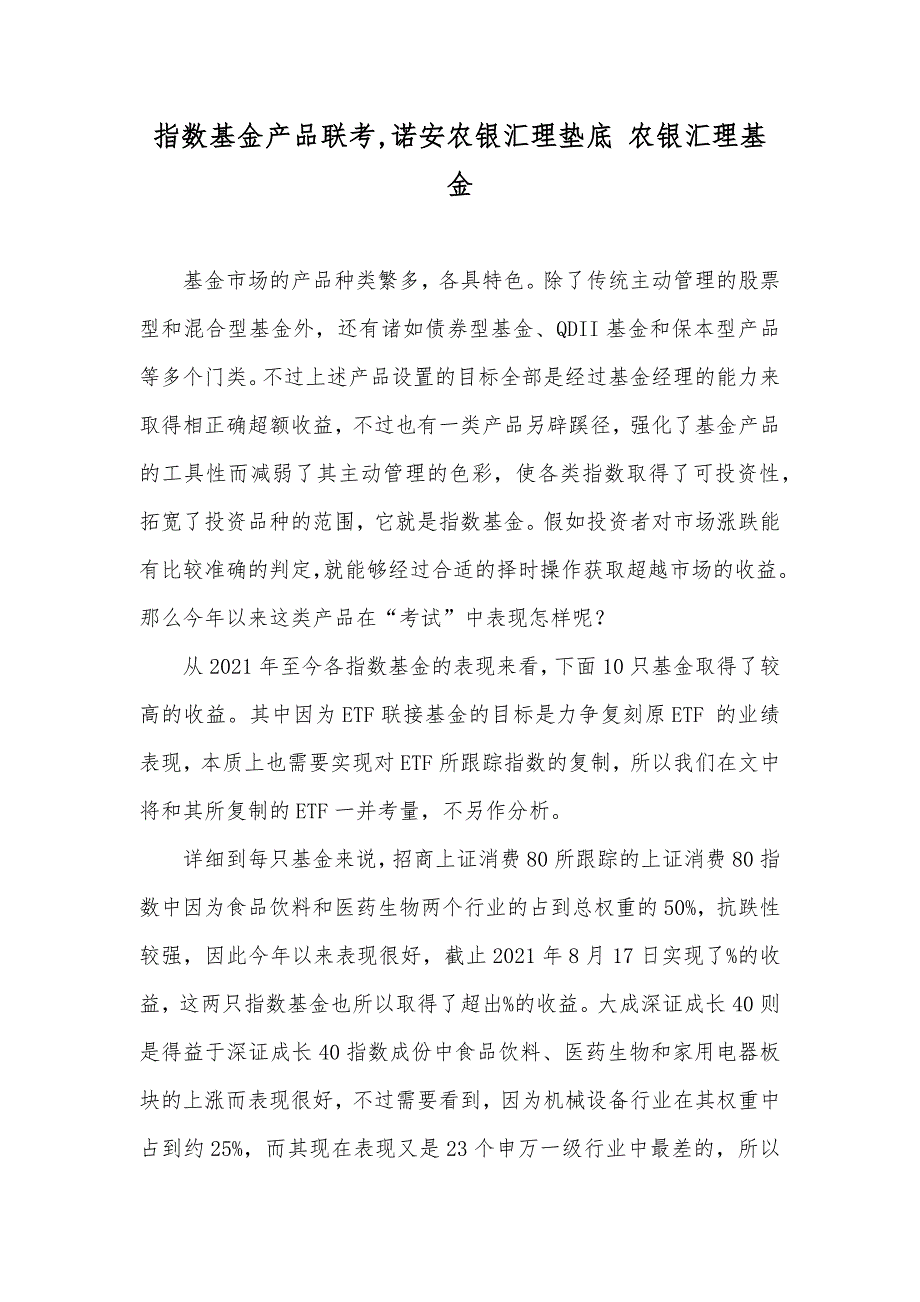 指数基金产品联考,诺安农银汇理垫底 农银汇理基
金
基金市场的产品种类繁多，各具特色。除了传统主动管理的股票
型和混合型基金外，还有诸如债券型基金、QDII 基金和保本型产品
等多个门类。不过上述产品设置的目标全部是经过基金经理的能力来
取得相正确超额收益，不过也有一类产品另辟蹊径，强化了基金产品
的工具性而减弱了其主动管理的色彩，使各类指数取得了可投资性，
拓宽了投资品种的范围，它就是指数基金。假如投资者对市场涨跌能
有比较准确的判定，就能够经过合适的择时操作获取超越市场的收益。
那么今年以来这类产品在“考试”中表现怎样呢？
从 2021 年至今各指数基金的表现来看，下面 10 只基金取得了较
高的收益。其中因为 ETF 联接基金的目标是力争复刻原 ETF 的业绩
表现，本质上也需要实现对 ETF 所跟踪指数的复制，所以我们在文中
将和其所复制的 ETF 一并考量，不另作分析。
详细到每只基金来说，招商上证消费 80 所跟踪的上证消费 80 指
数中因为食品饮料和医药生物两个行业的占到总权重的 50%，抗跌性
较强，因此今年以来表现很好，截止 2021 年 8 月 17 日实现了%的收
益，这两只指数基金也所以取得了超出%的收益。大成深证成长 40 则
是得益于深证成长 40 指数成份中食品饮料、医药生物和家用电器板
块的上涨而表现很好，不过需要看到，因为机械设备行业在其权重中
占到约 25%，而其现在表现又是 23 个申万一级行业中最差的，所以